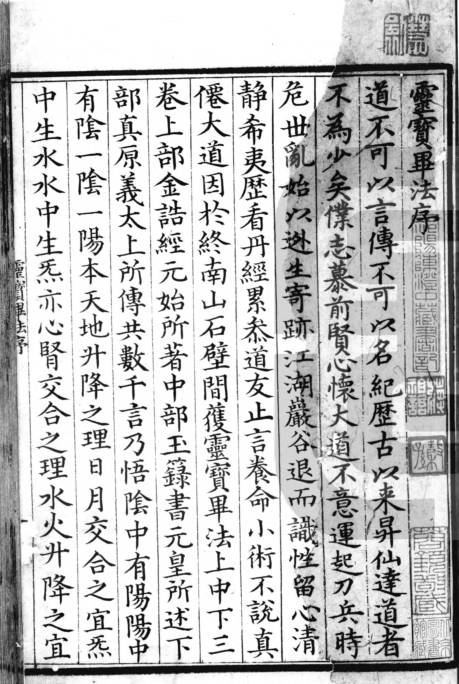 靈寶畢法序
道不可以言傳不可以名紀歷古以来昇仙達道者
不為少矣僕志慕前賢心懷大道不意運起刀兵時
危世亂始以逃生寄跡江湖巖谷退而識性留心清
静希夷歴看丹經累叅道友止言養命小術不說真
僊大道因於終南山石壁間獲靈寶畢法上中下三
卷上部金誥經元始所著中部玉籙書元皇所述下
部真原義太上所傳共數千言乃悟陰中有陽陽中
有陰一陰一陽本天地升降之理日月交合之宜炁
中生水水中生炁亦心腎交合之理水火升降之宜
靈寶畢法序